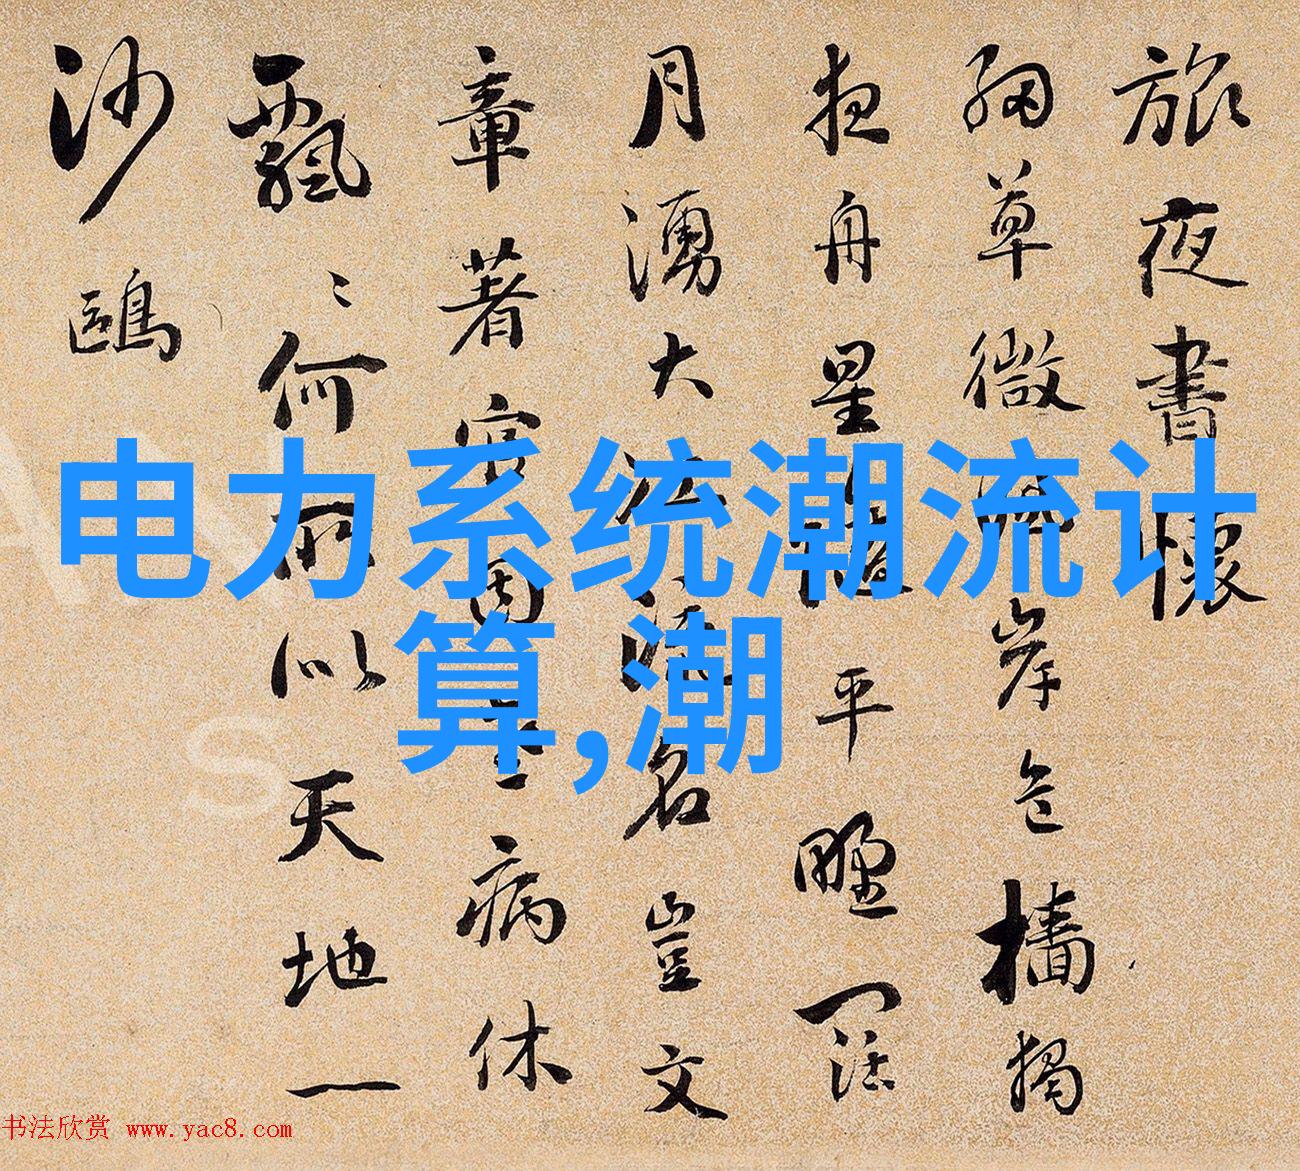 旅夜書懷
細草微岸危檣獨
夜舟星平野闊
月湧大江流名豈文
章著官因病休
飄〻何所似天地一
沙鷗
电力系统潮流计
算,潮
书法欣赏 www.yac8.com